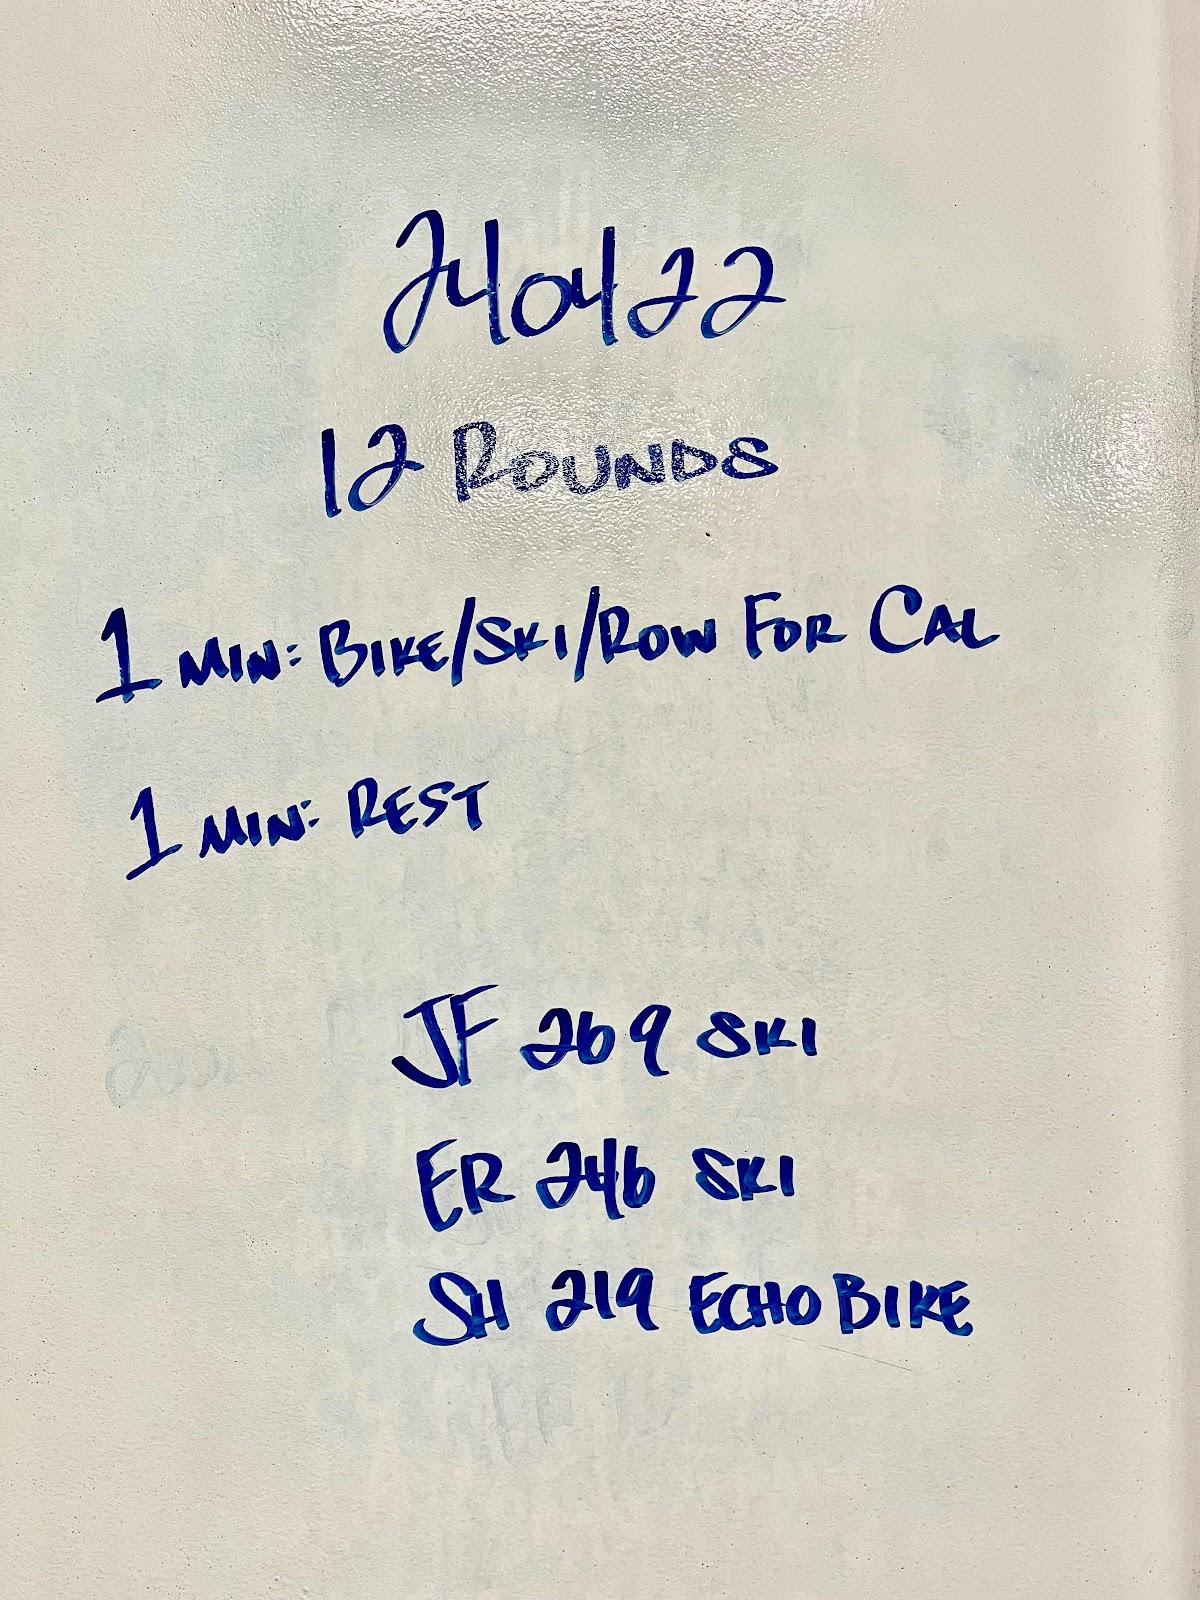 240422
12 ROUNDS
1 MIN: BIKE/SKI/ROW FOR CAL
1 MIN: REST
JF 269 SKI
ER 246 SKI
SH 219 ECHO BIKE